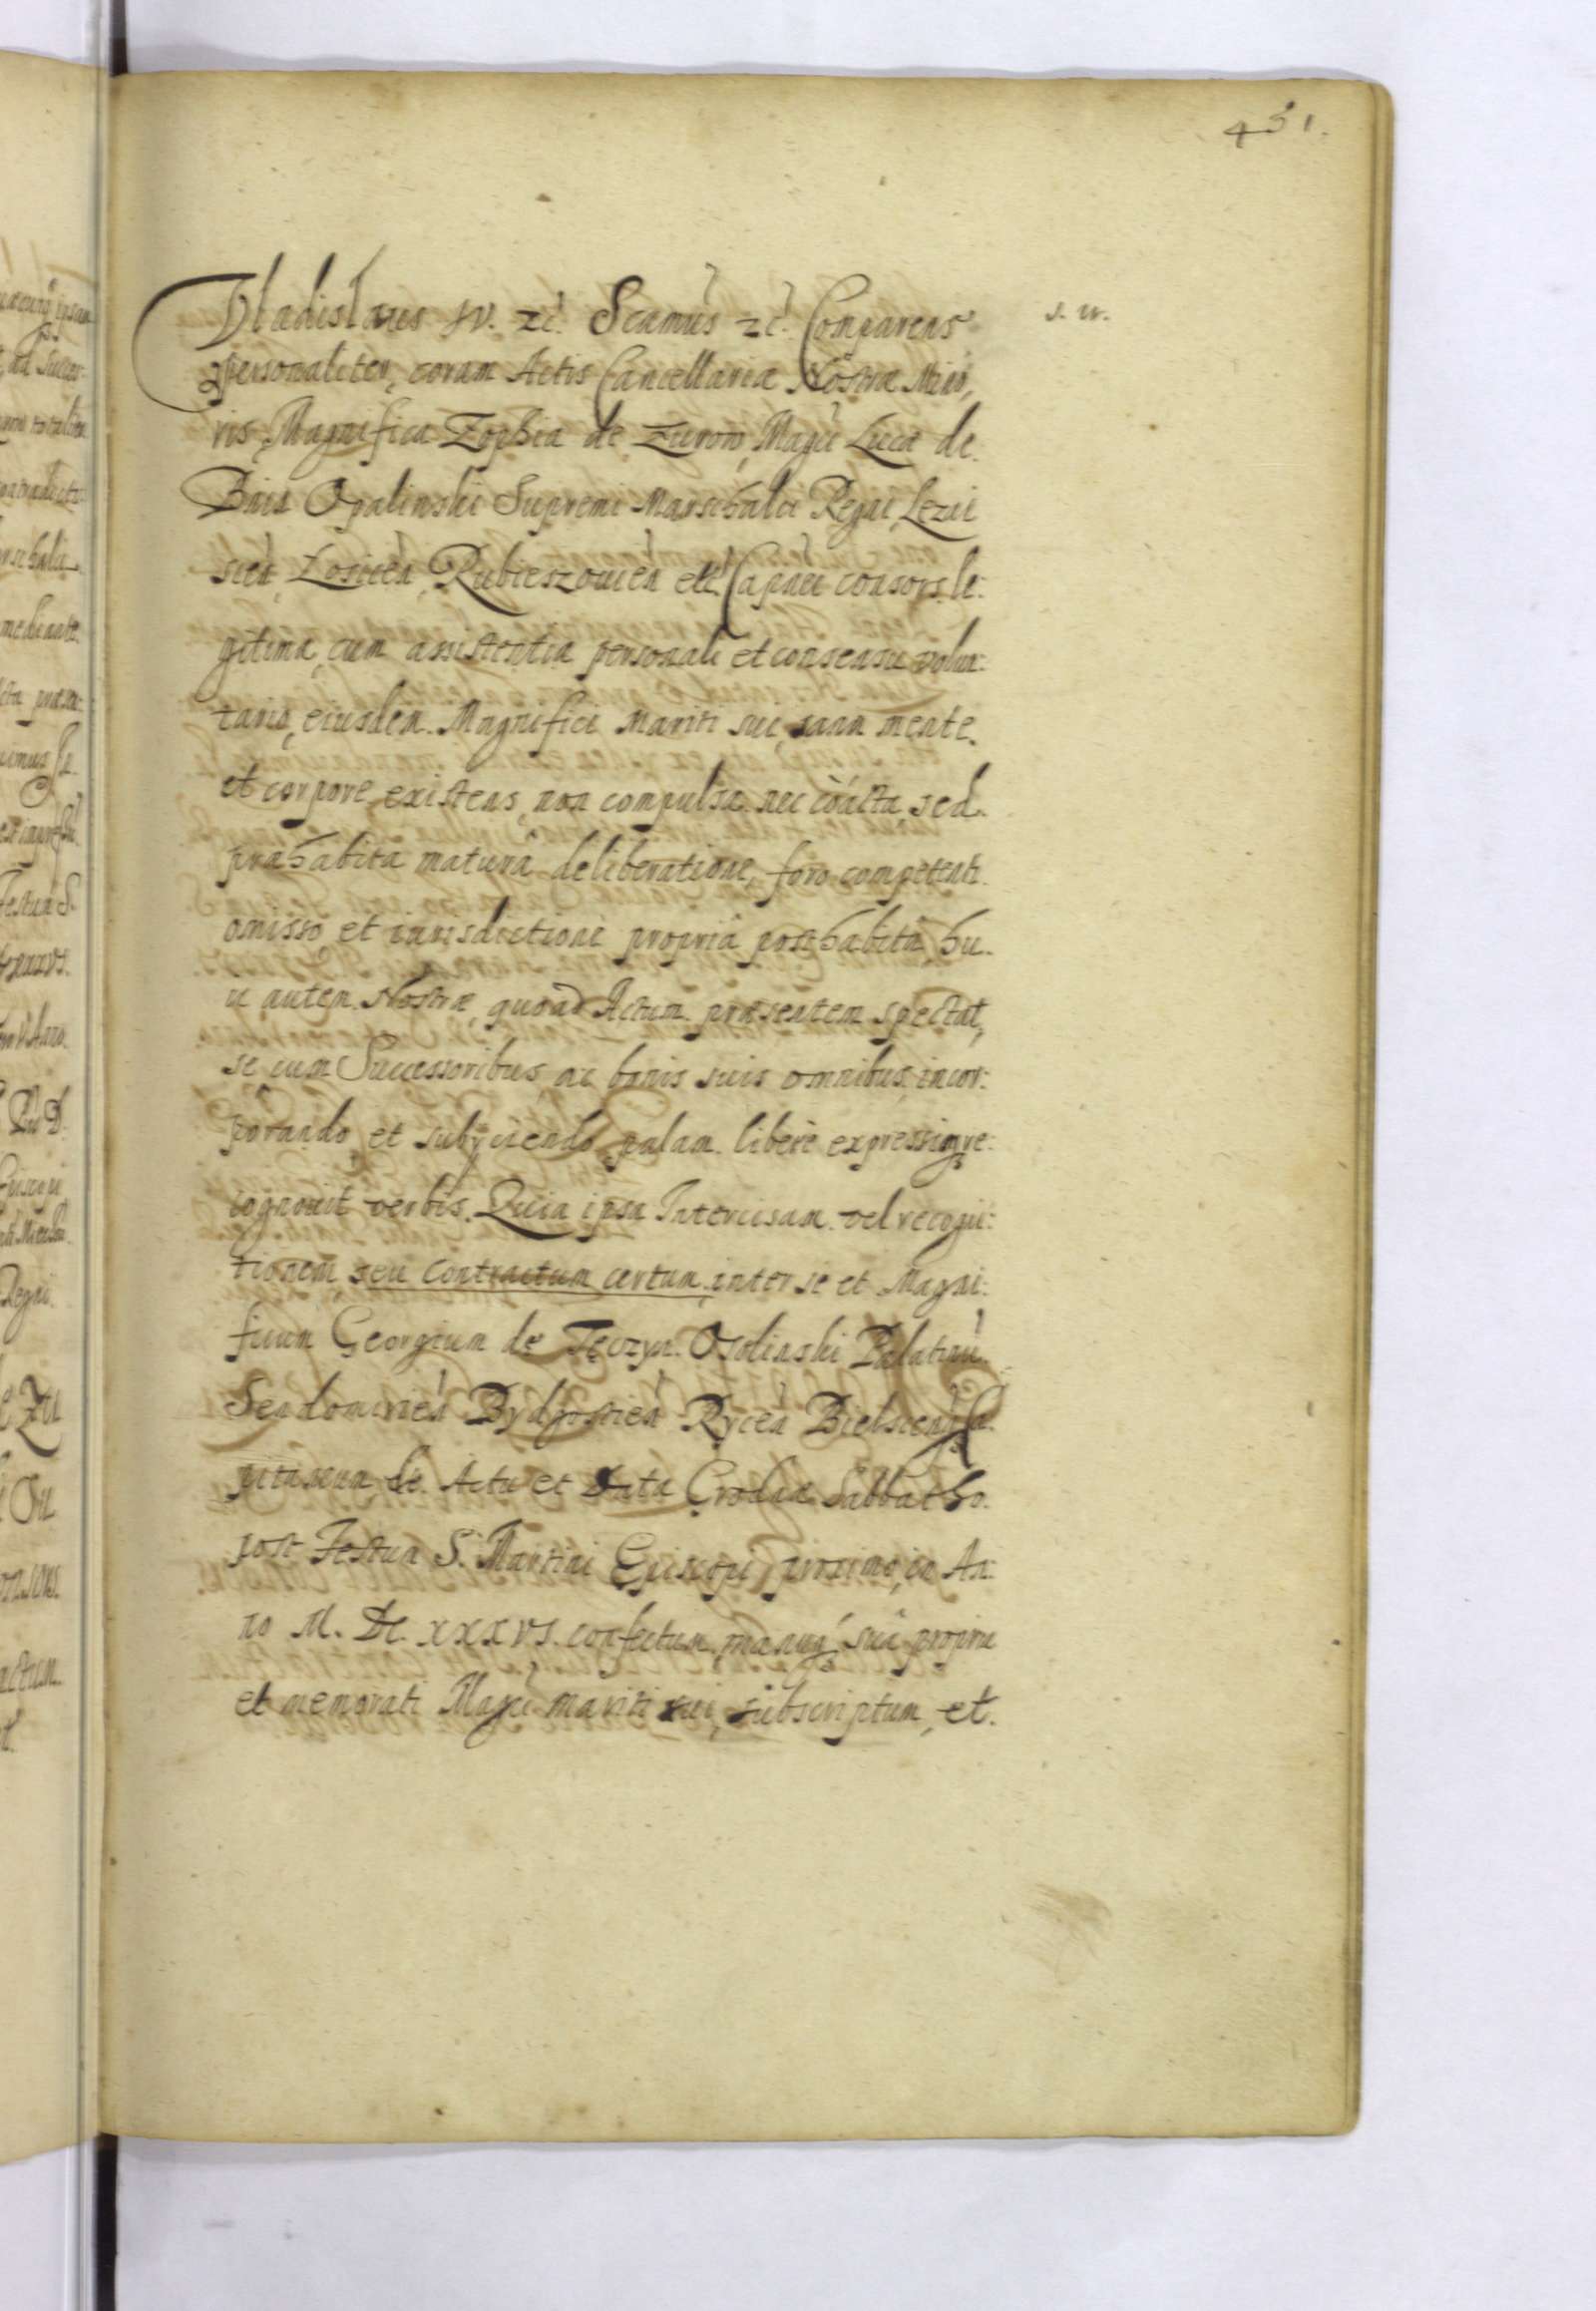 451.
Vladislaus IV. etc. Scamus etc. Comparens
s. w.
personaliter, coram Actis Cancellariæ Nostræ Mino,
ris, Magnifica Zophia de Zurow, Magci Lucæ de
Bnin Opalinski Supremi Marschalci Regni, Lezai
scen, Losicen, Rubieszouien etc. Capnei consors le:
gitima, cum assistentia personali et consensu volun:
tario, eiusdem Magnifici Mariti sui, sana mente
et corpore existens, non compulsa nec coacta, sed
præhabita maturâ deliberatione, foro competenti
omisso et iurisdictione propriâ posthabitâ, hu
ic autem Nostræ, quoad Actum præsentem spectat,
se cum Successoribus ac bonis suis omnibus incor:
porando et subijciendo, palam libere expressisque re:
cognouit verbis. Quia ipsa Intercisam vel recogni:
tionem, seu Contractum certum, inter se et Magni:
ficum Georgium de Tęczyn Osolinski Palatinu
Sendomirien Bydgostien Rycen Bielscenque Ca
pitaneum de Actu et Data Crodæ Sabbatho
post Festum S. Martini Episcopi proximo, in An:
no M. DC. XXXVI. confectum, manuque suâ propriâ
et memorati Magci mariti sui, subscriptum, et